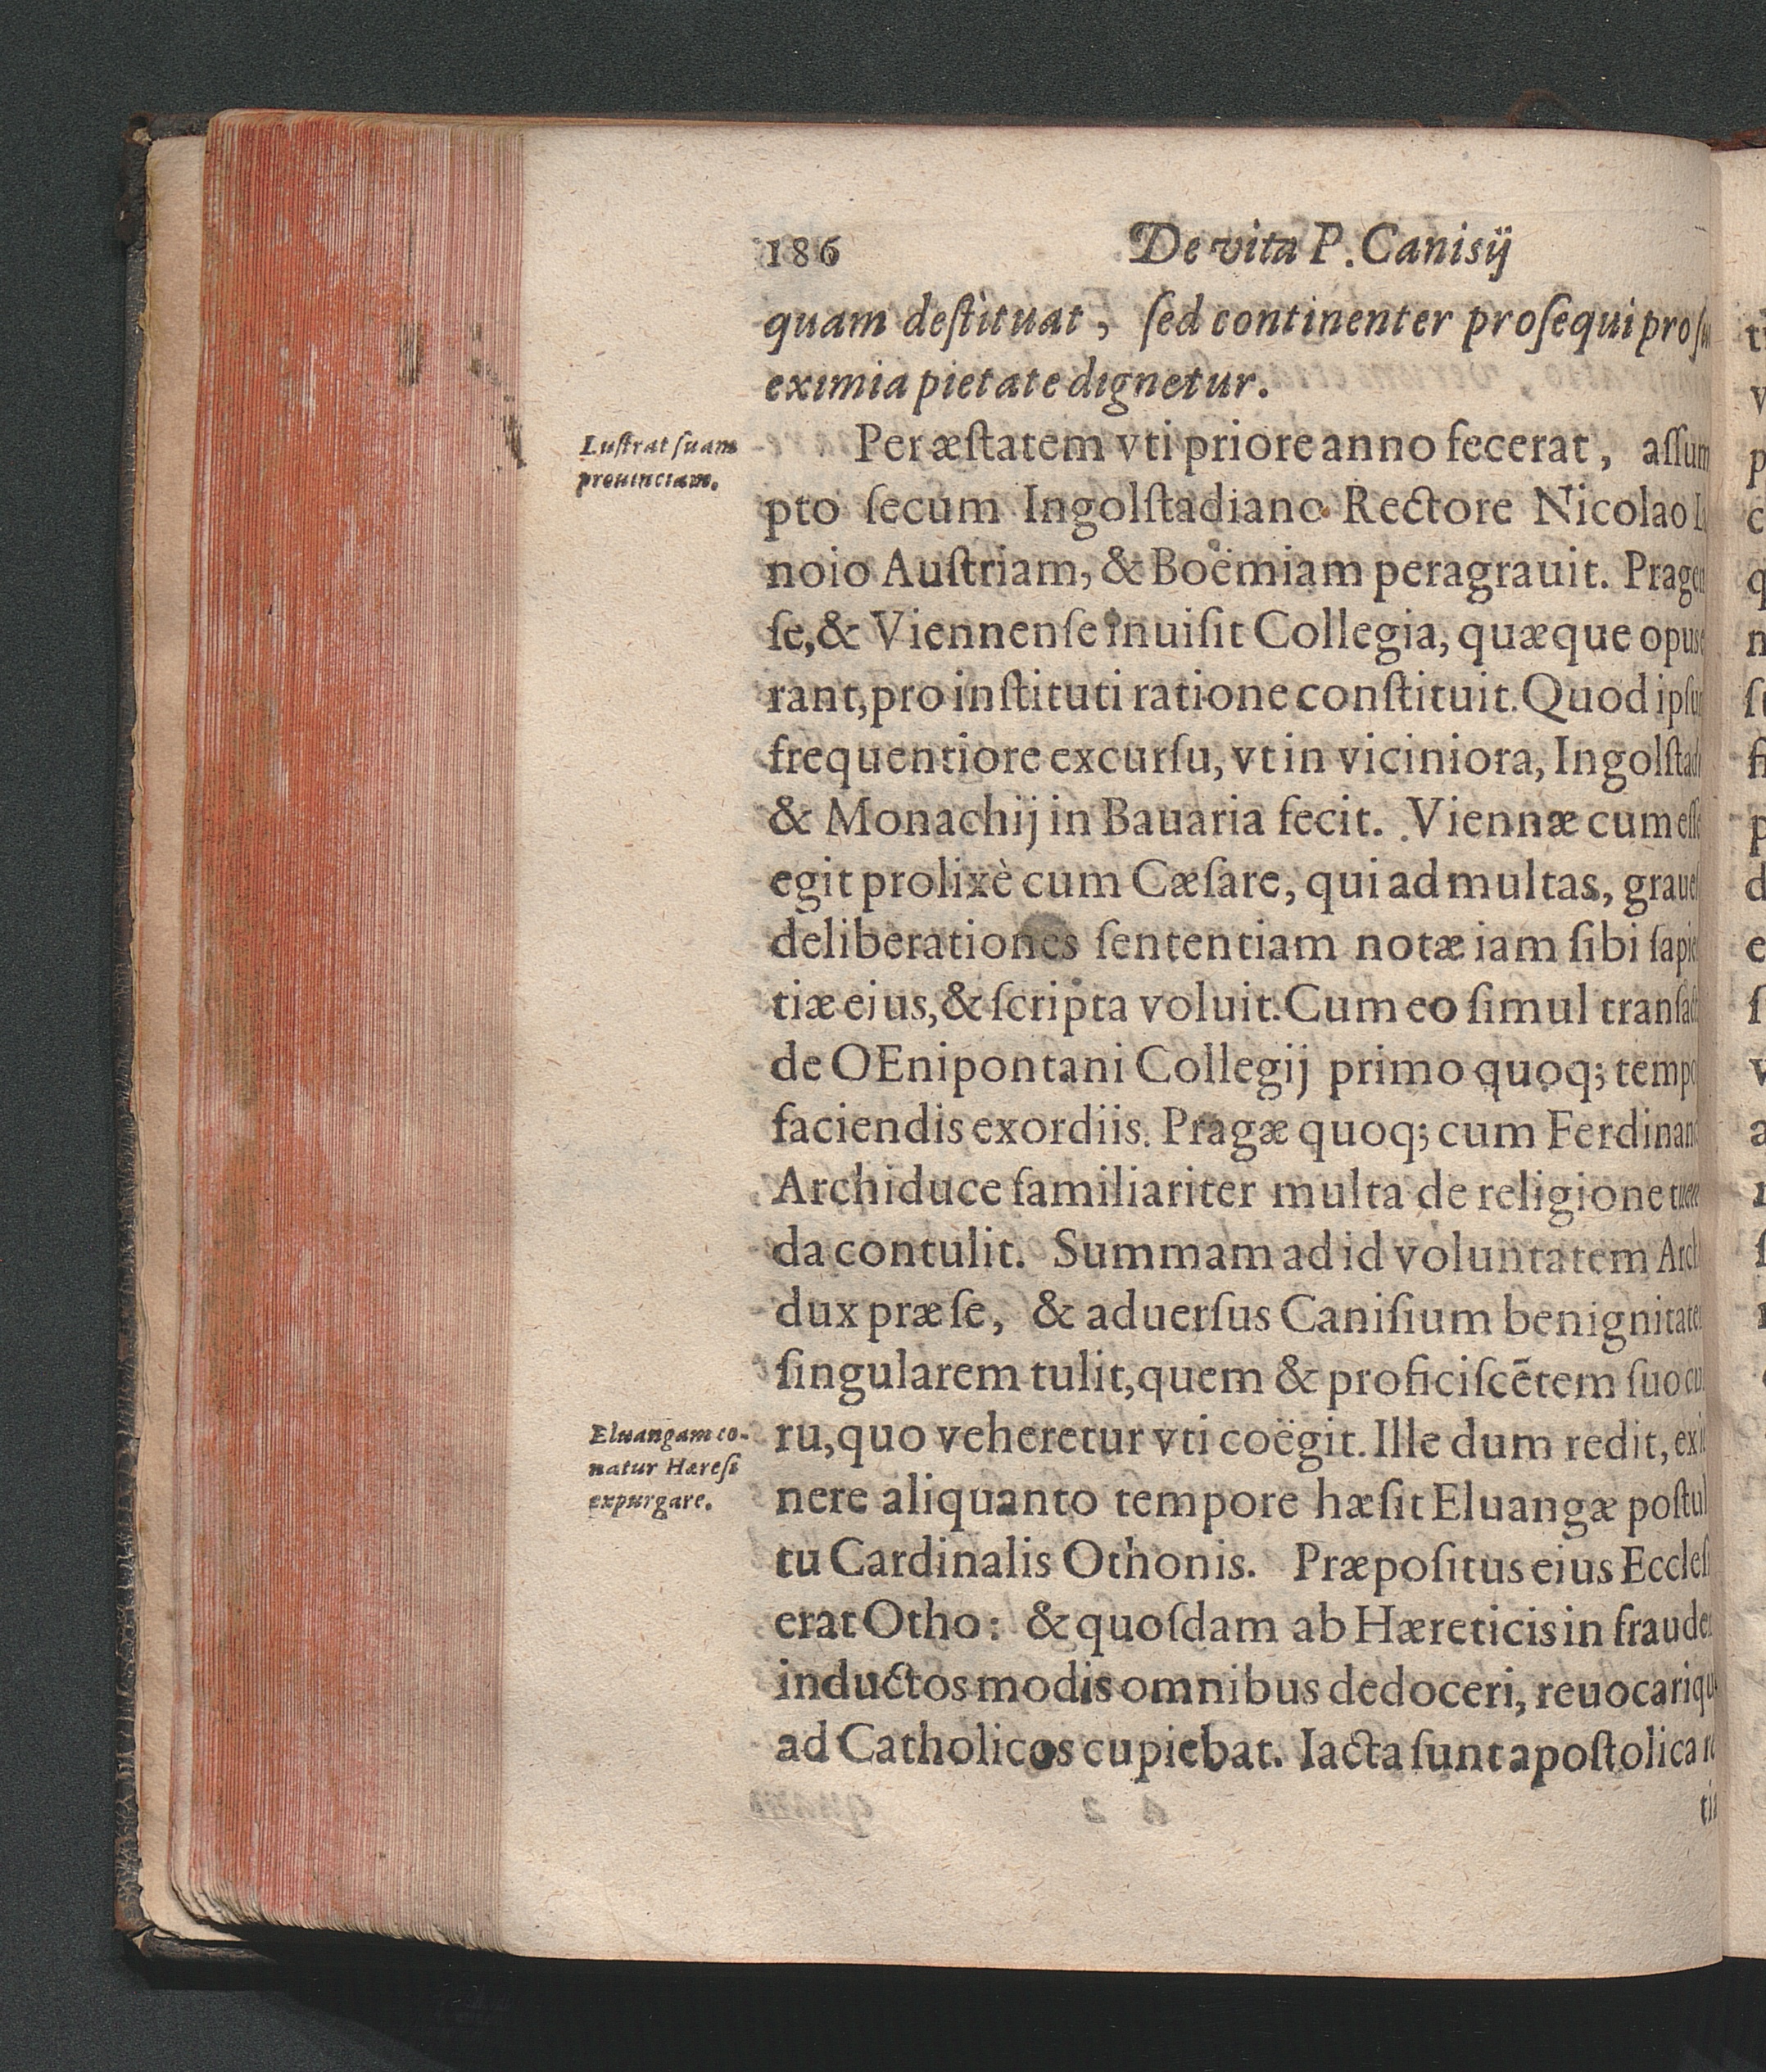 186 De vita P. Canisij
quam deſtituat, ſed continenter proſequi pro
eximia pietate dignetur.
Luſtrat ſuam
prouinciam.
Per æſtatem vti priore anno fecerat, aſſum
pto ſecum Ingolſtadiano Rectore Nicolao
noio Auſtriam, & Boëmiam peragrauit. Pragen
ſe, & Viennenſe inuiſit Collegia, quæque opus
rant, pro inſtituti ratione conſtituit. Quod ipſu
frequentiore excurſu, vt in viciniora, Ingolſtad
& Monachij in Bauaria fecit. Viennæ cum eſſe
egit prolixè cum Cæſare, qui ad multas, graue
deliberationes ſententiam notæ iam ſibi ſapie
tiæ ejus, & ſcripta voluit. Cum eo ſimul tranſact
de OEnipontani Collegij primo quoq; tempo
faciendis exordiis. Pragæ quoq; cum Ferdinand
Archiduce familiariter multa de religione tuen
da contulit. Summam ad id voluntatem Archi
dux præ ſe, & aduerſus Caniſium benignitate
ſingularem tulit, quem & proficiſcẽtem ſuo cu
Eluangam co-
natur Hæreſi
expurgare.
ru, quo veheretur vti coëgit. Ille dum redit, ex i
nere aliquanto tempore hæſit Eluangæ poſtul
tu Cardinalis Othonis. Præpoſitus eius Eccleſi
erat Otho: & quoſdam ab Hæreticis in fraude
inductos modis omnibus dedoceri, reuocarique
ad Catholicos cupiebat. Iacta ſunt apoſtolica